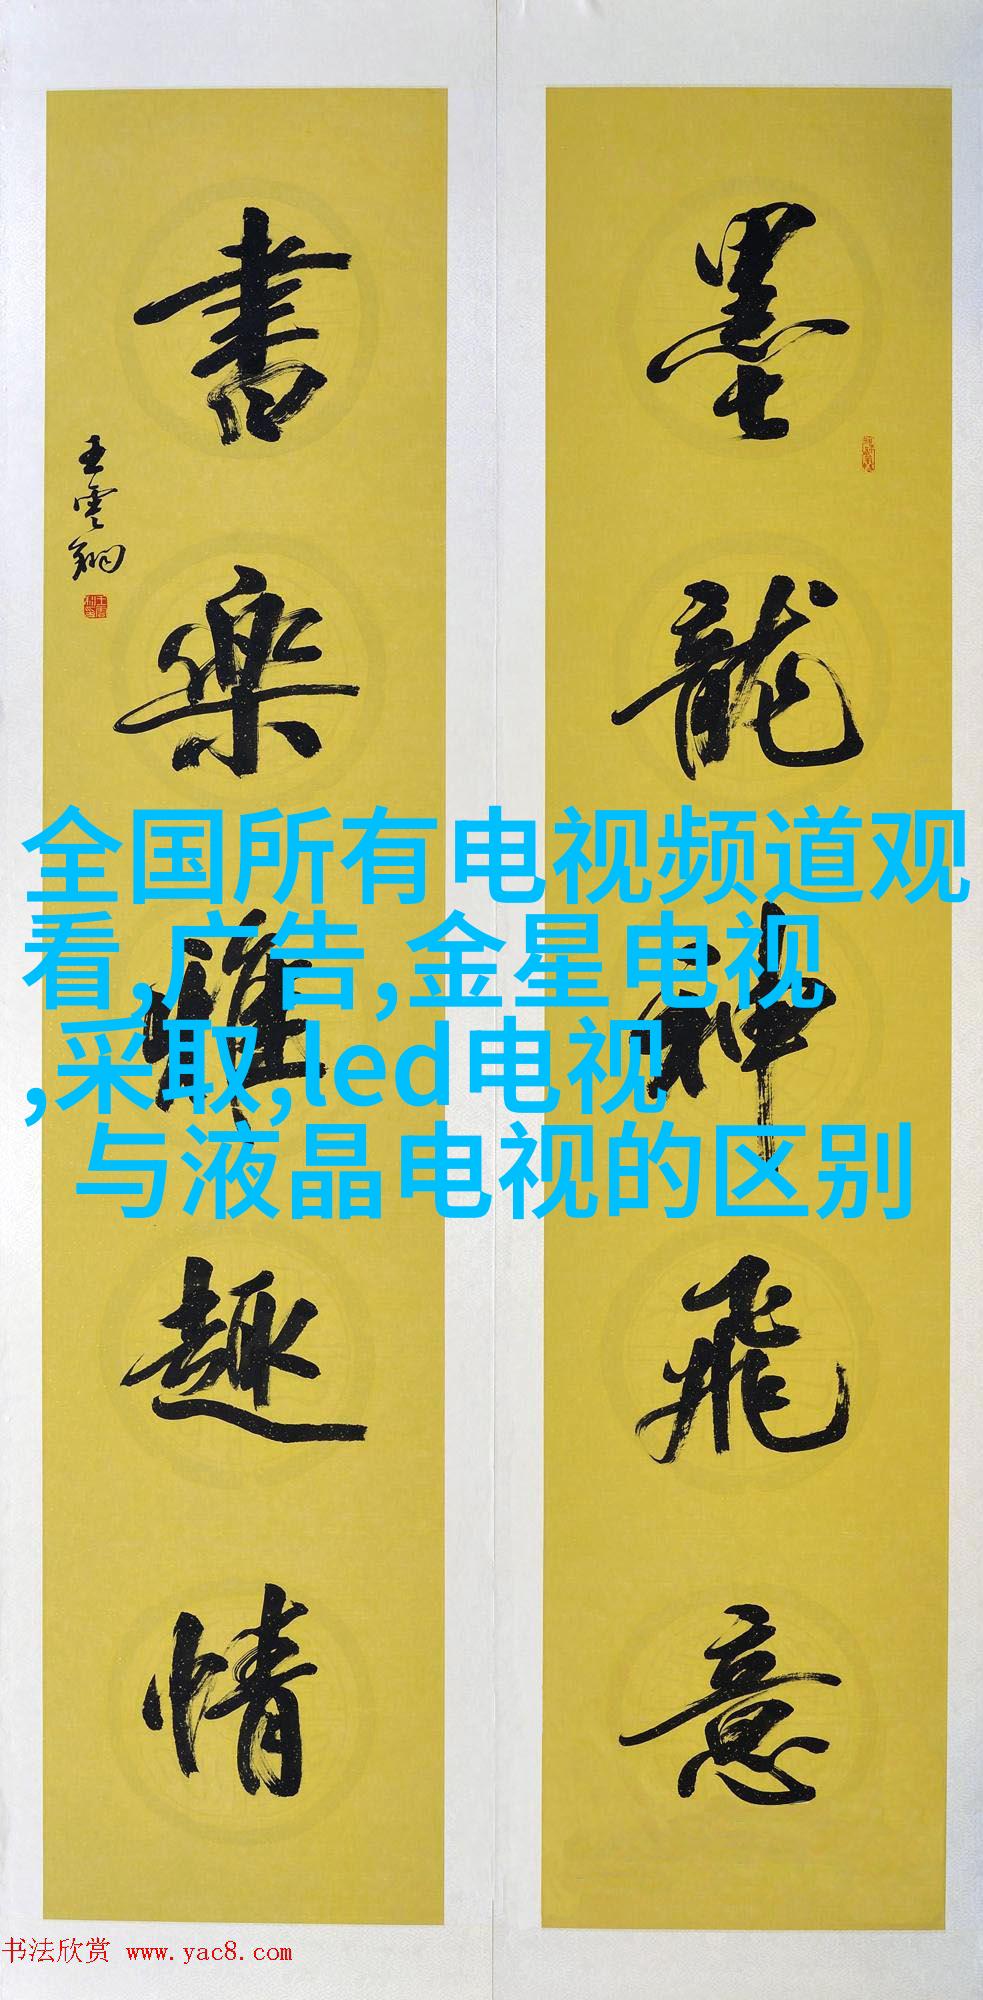 墨龍神飛意
書樂雅趣情
王雲翔
全国所有电视频道观
看,广告,金星电视
,采取,led电视
与液晶电视的区别
书法欣赏 www.yac8.com